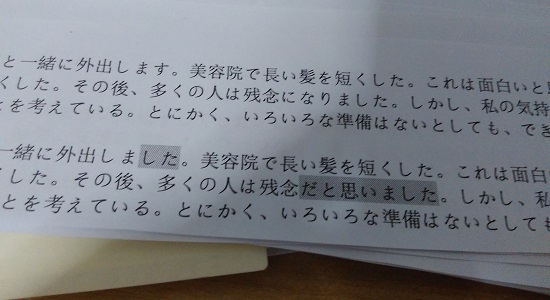 と一緒に外出します。美容院で長い髪を短くした。これは面白いと
くした。その後、多くの人は残念になりました。しかし、私の気持
とを考えている。とにかく、いろいろな準備はないとしても、でき
一緒に外出しました。美容院で長い髪を短くした。これは面白い
くした。その後、多くの人は残念だと思いました。しかし、私
ことを考えている。とにかく、いろいろな準備はないとしても